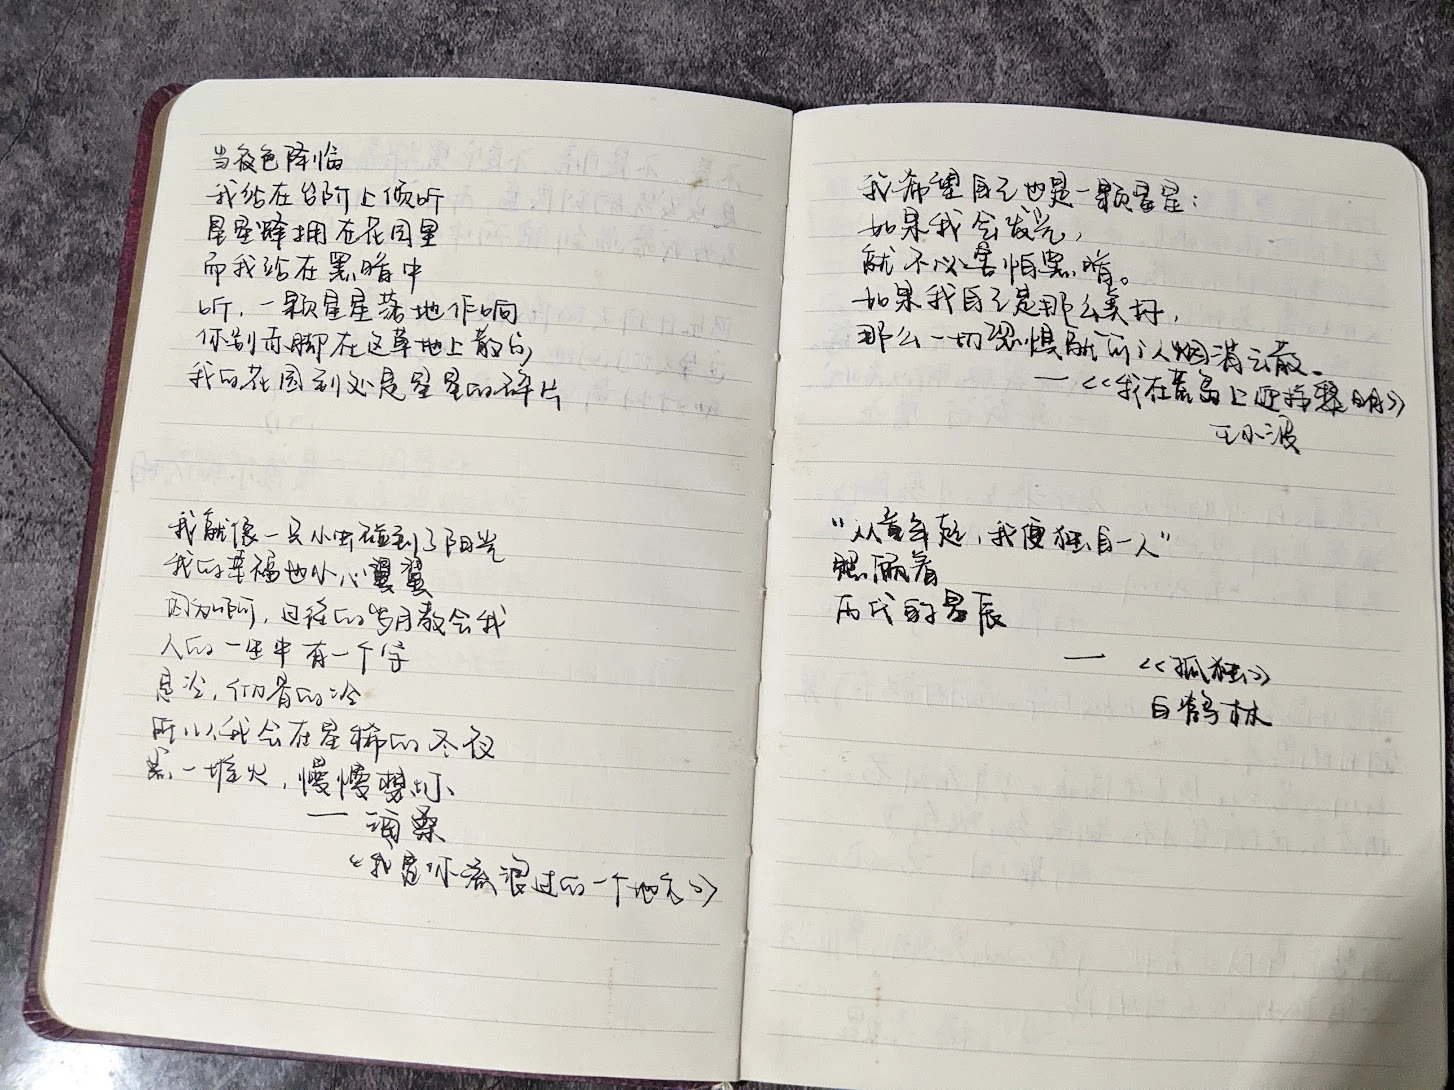 当夜色降临
我站在台阶上倾听
星星蜂拥在花园里
而我站在黑暗中
听，一颗星星落地作响
你别赤脚在这草地上散步
我的花园到处是星星的碎片
我就像一只小虫碰到了阳光
我的幸福也小心翼翼
因为啊，过往的岁月教会我
人的一生中有一个字
是冷，彻骨的冷
所以我会在星稀的冬夜
点一堆火，慢慢想你
一 调桑
《我是你流浪过的一个地方》
我希望自己也是一颗星星：
如果我会发光，
就不必害怕黑暗。
如果我自己是那么美好，
那么一切恐惧就可以烟消云散。
一《我在荒岛上迎接黎明》
王小波
“从童年起，我便独自一人”
照顾着
历代的星辰
一 《孤独》
白鹤林